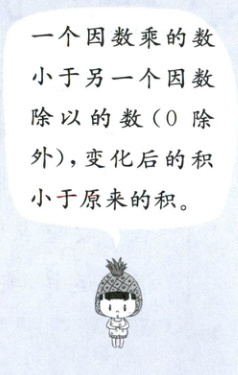 一个因数乘的数
小于另一个因数
除以的数（0 除
外），变化后的积
小于原来的积。